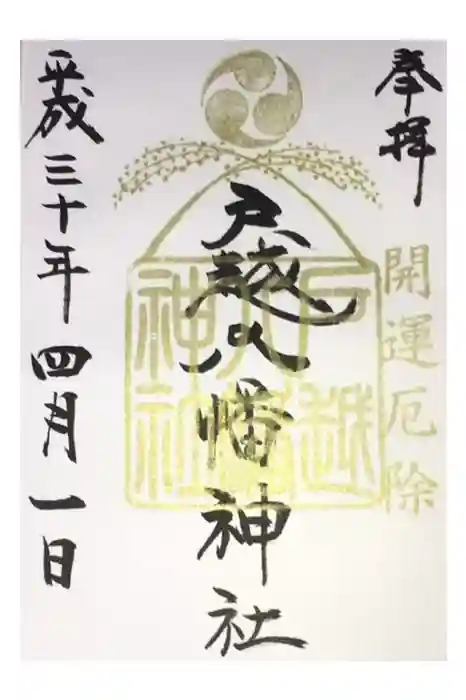 奉拝
開運厄除
戸越八幡神社
戸越
八幡
神社
平成三十年四月一日